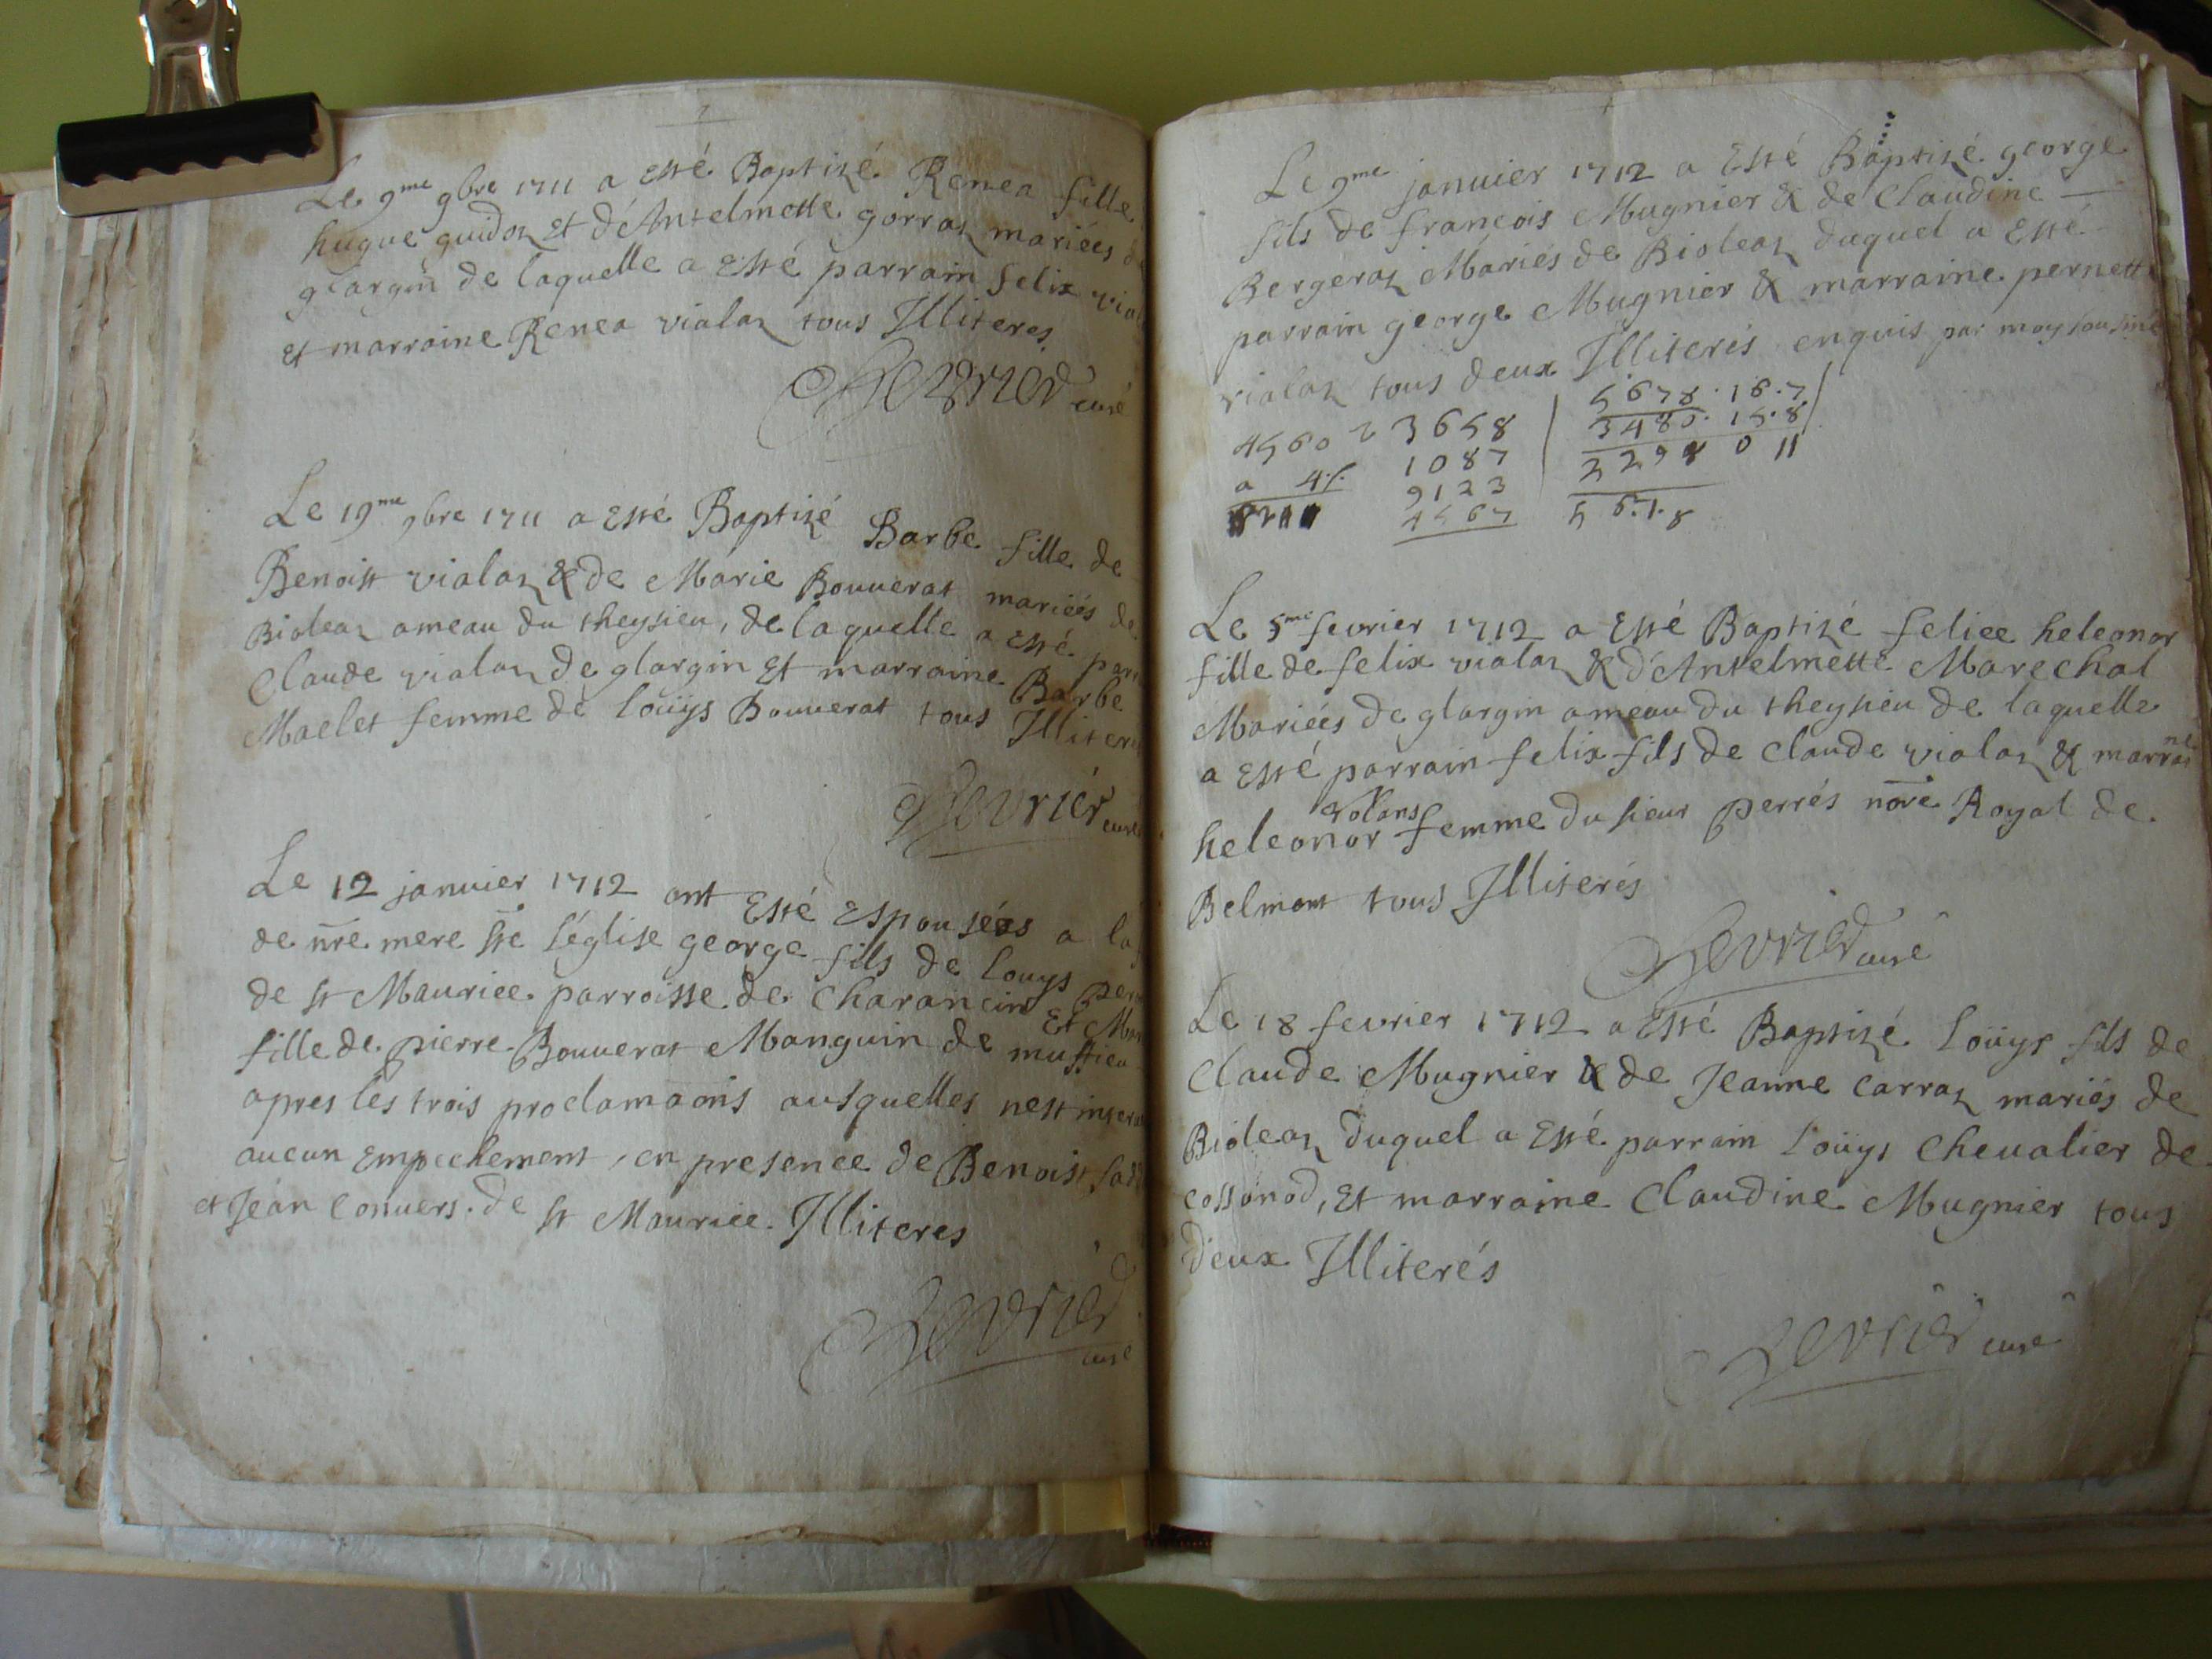 Le 9me 9bre 1711 a Esté Baptizé Renea fille
hugue guidoz et d'Antelmette gorraz mariées
glargin de laquelle a Esté parrain felix
et marraine Renea vialaz tous Illiteres
Chevrier curé
Le 19me 9bre 1711 a Esté Baptizé Barbe fille de
Benoist vialaz & de Marie Bouuerat mariées de
Bioleaz ameau du theysieu, de laquelle a Esté
Claude vialaz de glargin Et marraine Barbe
Maclet femme de loüys Bouuerat tous
Chevrier curé
Le 12 januier 1712 ont Esté Espousés a la
de nre mere ste l'église george fils de louys
de st Maurice parroisse de Charancin Et
fille de pierre Bouuerat Manguin de mussieu
apres les trois proclamaons ausquelles nest
aucun empechement, en presence de Benoist
et Jean Conuers de st Maurice Illiteres
Chevrier
curé
Le 9me januier 1712 a Esté Baptizé george
fils de françois Mugnier & de Claudine
Bergeraz Mariés de Bioleaz duquel a Esté
parrain george Mugnier & marraine pernette
vialaz tous deux Illiterés enquis par moy
4560 2 3658 5678.16.7
a 4% 1087 3480.15.8
9123 2298 0 11
4567
Le 5me feurier 1712 a Esté Baptizé felice heleonor
fille de felix vialaz & d'Antelmette Marechal
Mariées de glargin ameau du theysieu de laquelle
a Esté parrain felix fils de claude vialaz & marraine
Rolans
heleonor femme du sieur perrés nore Royal de
Belmont tous Illiterés
Chevrier curé
Le 18 feurier 1712 a Esté Baptizé loüys fils de
Claude Mugnier & de Jeanne Carraz mariés de
Bioleaz duquel a Esté parrain loüys Cheualier de
cossonod, Et marraine Claudine Mugnier tous
deux Illiterés
Chevrier curé